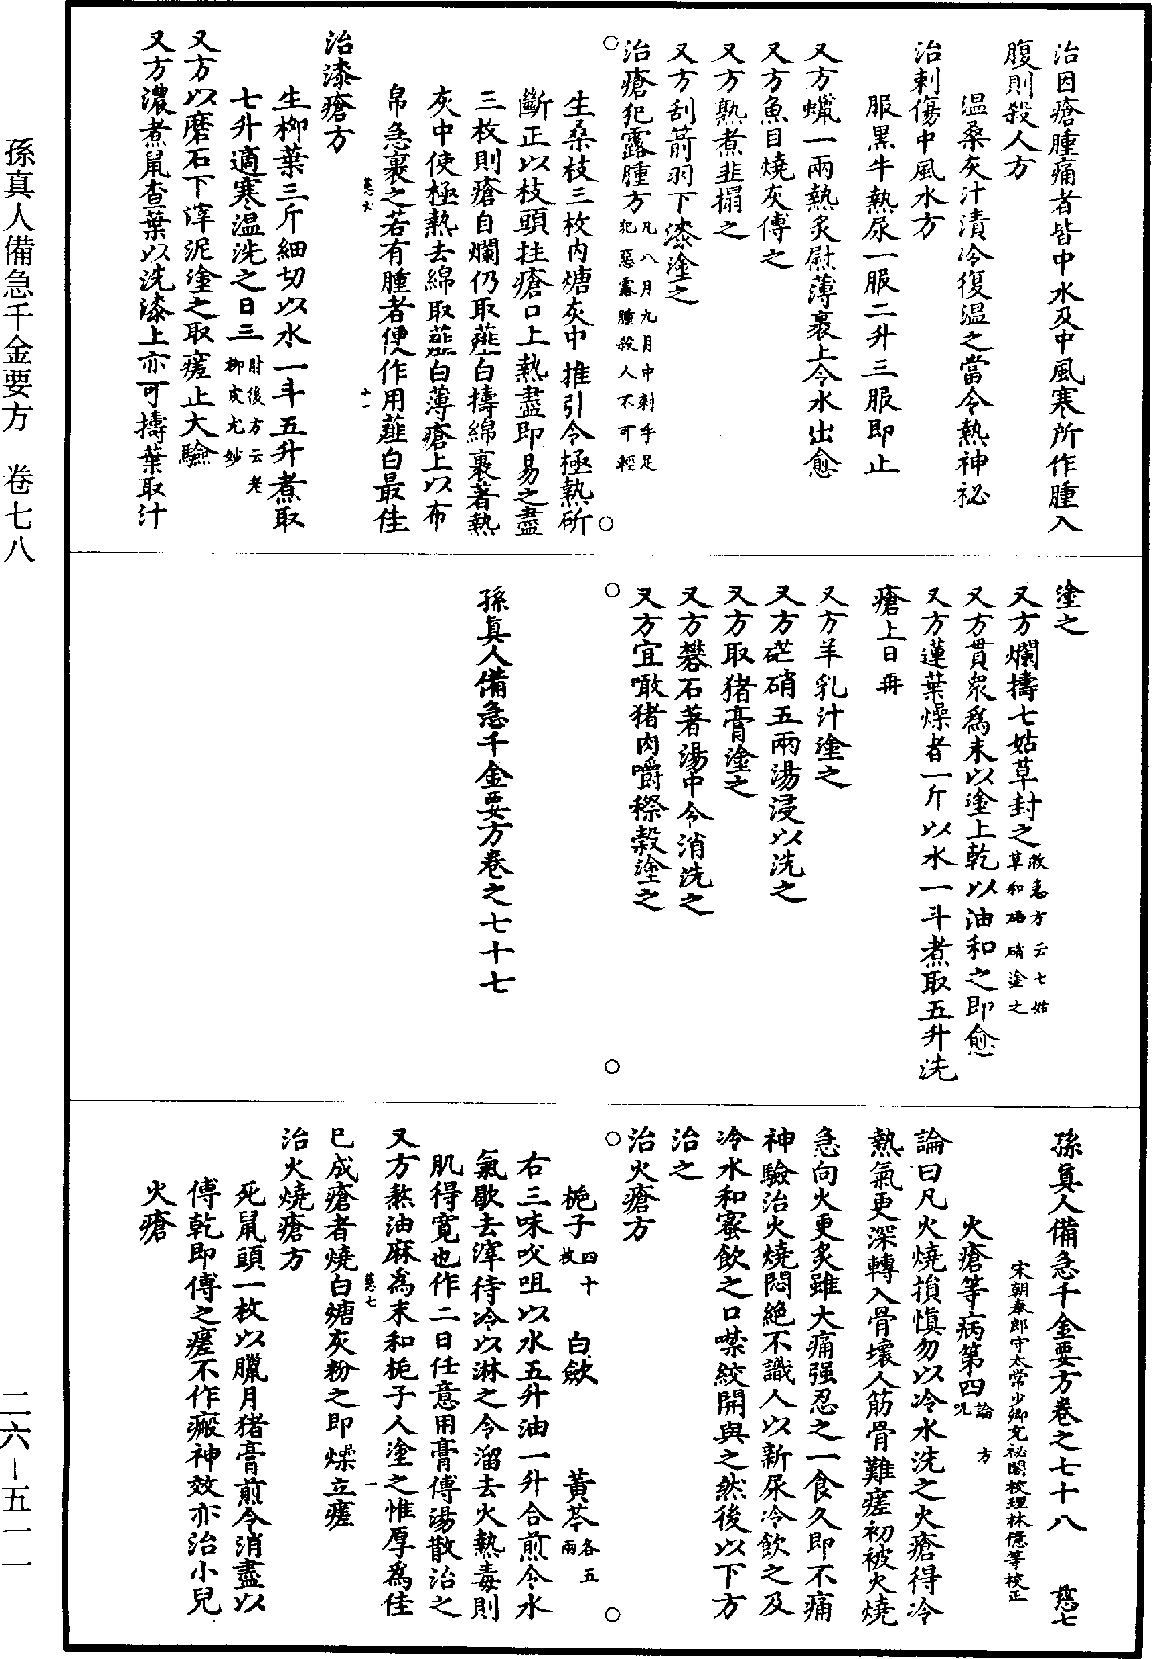 治因瘡腫痛者皆中水及中風寒所作腫入
腹則殺人方
溫桑灰汁漬冷復溫之當令熱神祕
治刺傷中風水方
服黑牛熱尿一服二升三服即止
又方蠟一兩熱炙熨薄裹上令水出愈
又方魚目燒灰傅之
又方熟煮韭搨之
又方刮箭羽下漆塗之
治瘡犯露腫方凡八月九月中刺手足犯惡露腫殺人不可輕
生桑枝三枚內煻灰中推引令極熱斫
斷正以枝頭拄瘡口上熱盡即易之盡
三枚則瘡自爛仍取薤白擣綿裹著熱
灰中使極熱去綿取薤白薄瘡上以布
帛急裹之若有腫者便作用薤白最佳
慈六
十一
治漆瘡方
生柳葉三斤細切以水一斗五升煮取
七升適寒溫洗之日三肘後方云老柳皮尤妙
又方以磨石下滓泥塗之取瘥止大驗
又方濃煮鼠查葉以洗漆上亦可擣葉取汁
塗之
又方爛擣七姑草封之救急方云七姑草和硭硝塗之
又方貫眾爲末以塗上乾以油和之即愈
又方蓮葉燥者一斤以水一斗煮取五升洗
瘡上日再
又方羊乳汁塗之
又方硭硝五兩湯浸以洗之
又方取猪膏塗之
又方礬石著湯中令消洗之
又方宜噉猪肉嚼穄穀塗之
孫眞人備急千金要方卷之七十七
孫眞人備急千金要方卷之七十八 慈七
宋朝奉郎守太常少卿充祕閣校理林億等校正
火瘡等病第四論方咒
論曰凡火燒損慎勿以冷水洗之火瘡得冷
熱氣更深轉入骨壞人筋骨難瘥初被火燒
急向火更炙雖大痛强忍之一食久即不痛
神驗治火燒悶絕不識人以新尿冷飲之及
冷水和蜜飲之口噤絞開與之然後以下方
治之
治火瘡方
梔子四十枚 白斂 黃芩各五兩
右三味㕮咀以水五升油一升合煎令水
氣歇去滓待冷以淋之令溜去火熱毒則
肌得寬也作二日任意用膏傅湯散治之
又方熬油麻爲末和梔子人塗之惟厚爲佳
慈七
一
已成瘡者燒白煻灰粉之即燥立瘥
治火燒瘡方
死鼠頭一枚以臘月猪膏煎令消盡以
傅乾即傅之瘥不作瘢神效亦治小兒
火瘡
孫真人備急千金要方 卷七八
二六－五一一